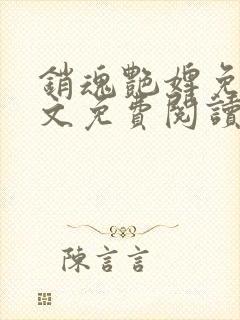 銷魂艷婢免
文免費閱讀
陳言言